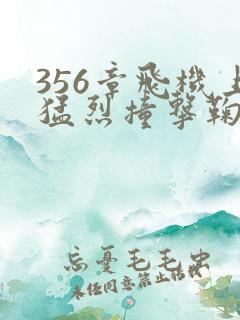 356章飛機上
猛烈撞擊鞠
忘憂毛毛虫
未任同意禁止转载